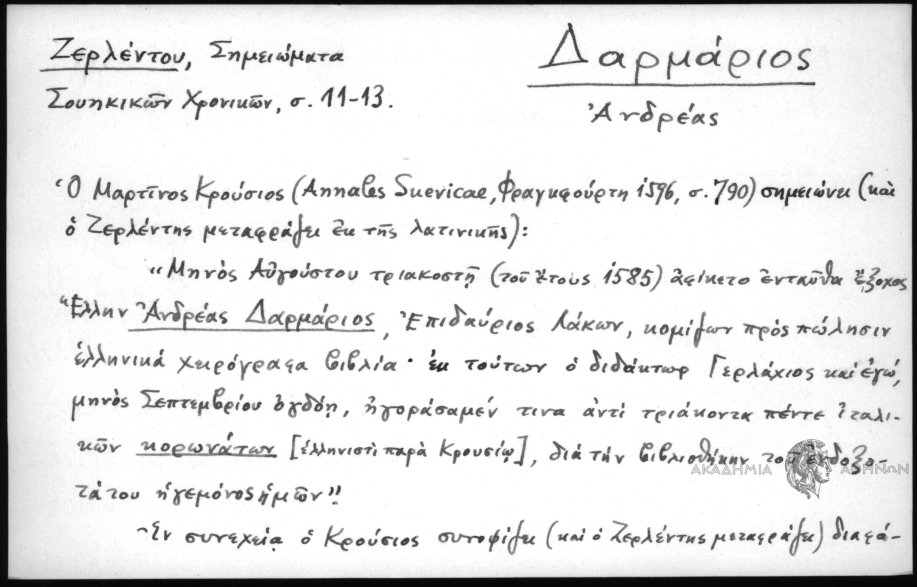 Ζερλέντου, Σημειώματα
Σουηκικῶν Χρονικῶν, σ. 11-13.
Δαρμάριος
Ἀνδρέας
Ὁ Μαρτῖνος Κρούσιος (Annales Suevicae, Φραγκφούρτη 1596, σ. 790) σημειώνει (καὶ
ὁ Ζερλέντης μεταφράζει ἐκ τῆς λατινικῆς):
"Μηνὸς Αὐγούστου τριακοστῇ (τοῦ ἔτους 1585) ἀφίκετο ἐνταῦθα ἔξοχος
Ἕλλην Ἀνδρέας Δαρμάριος, Ἐπιδαύριος Λάκων, κομίζων πρὸς πώλησιν
ἑλληνικά χειρόγραφα βιβλία· ἐκ τούτων ὁ διδάκτωρ Γερλάχιος καὶ ἐγώ,
μηνὸς Σεπτεμβρίου ὀγδόῃ, ἠγοράσαμέν τινα ἀντὶ τριάκοντα πέντε ἰταλι-
κῶν κορωνάτων [ἑλληνιστὶ παρὰ Κρουσίῳ], διὰ τὴν βιβλιοθήκην τοῦ ἐνδοξο-
τάτου ἡγεμόνος ἡμῶν".
Ἐν συνεχείᾳ ὁ Κρούσιος συνοψίζει (καὶ ὁ Ζερλέντης μεταφράζει) διαφό-
ΑΚΑΔΗΜΙΑ ΑΘΗΝΩΝ